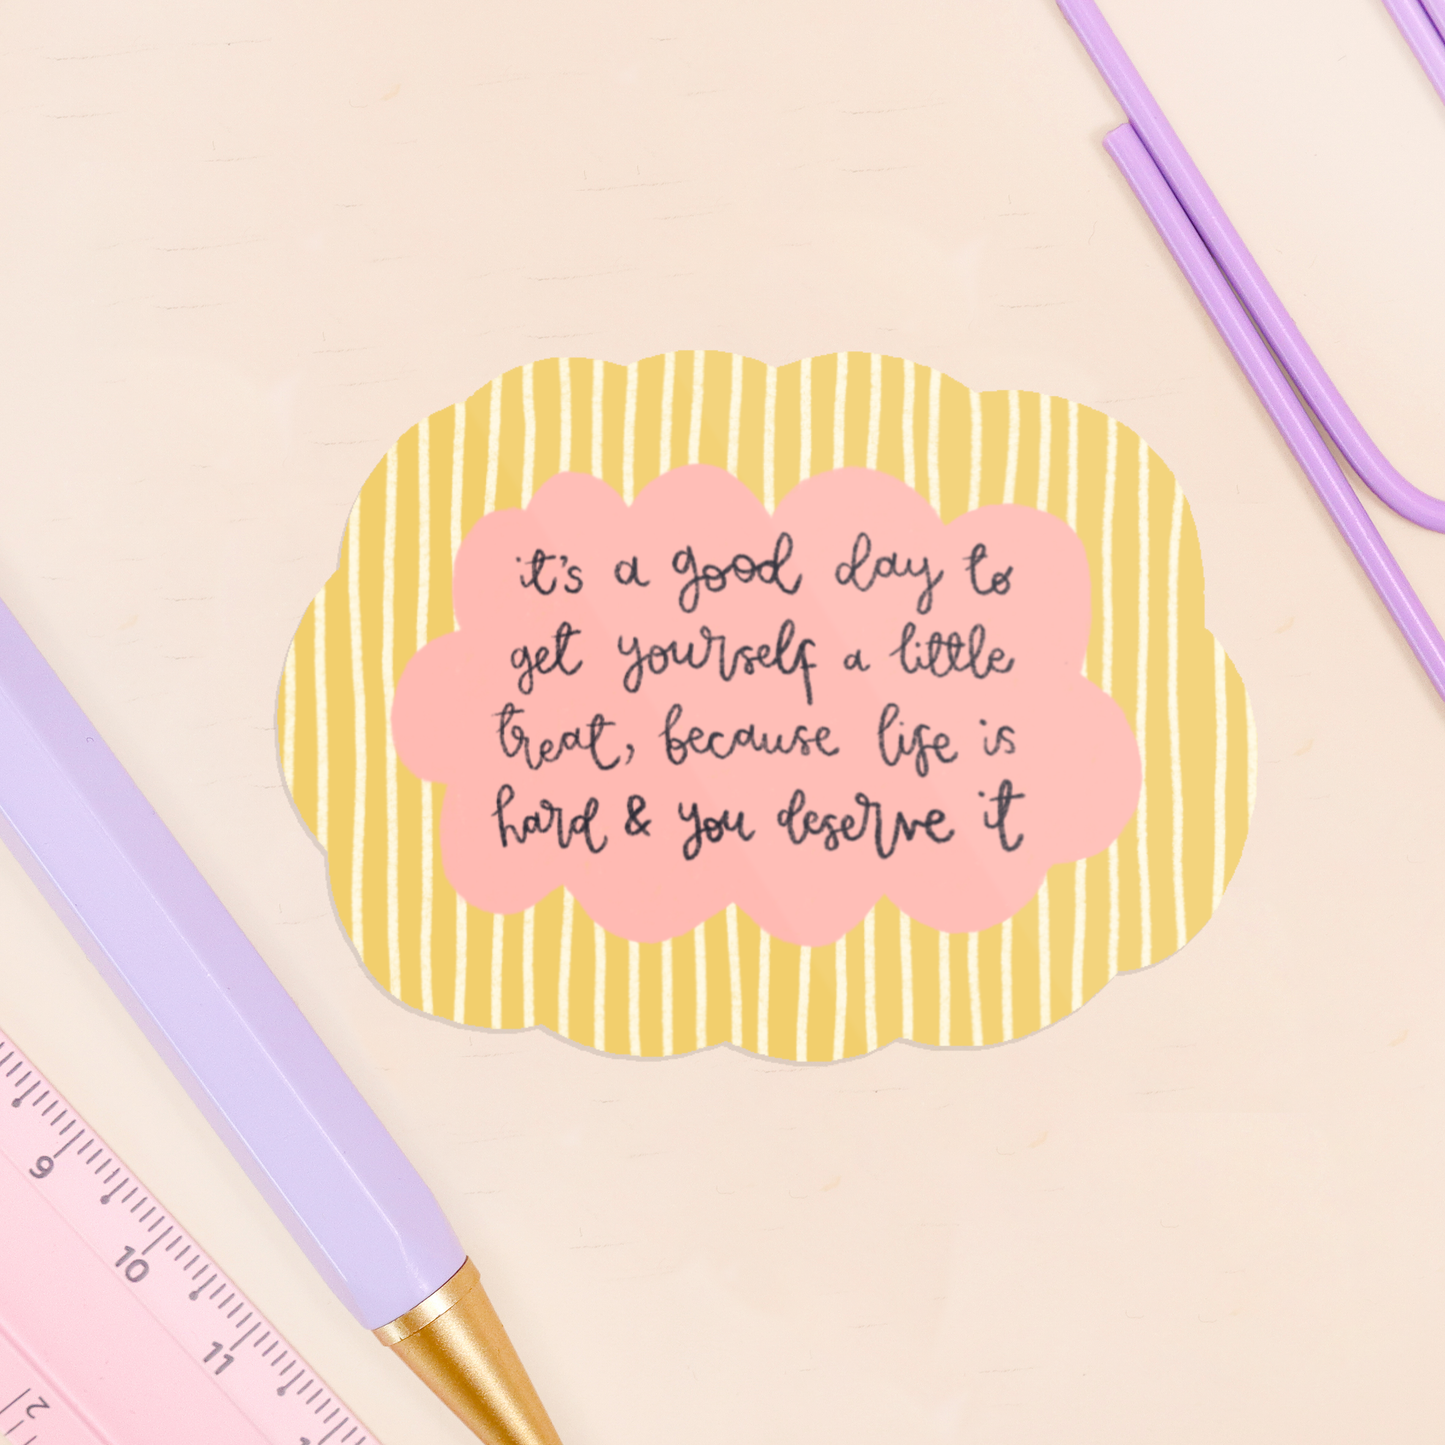 it's a good day to
get yourself a little
treat, because life is
hard & you deserve it
9
10
11
2